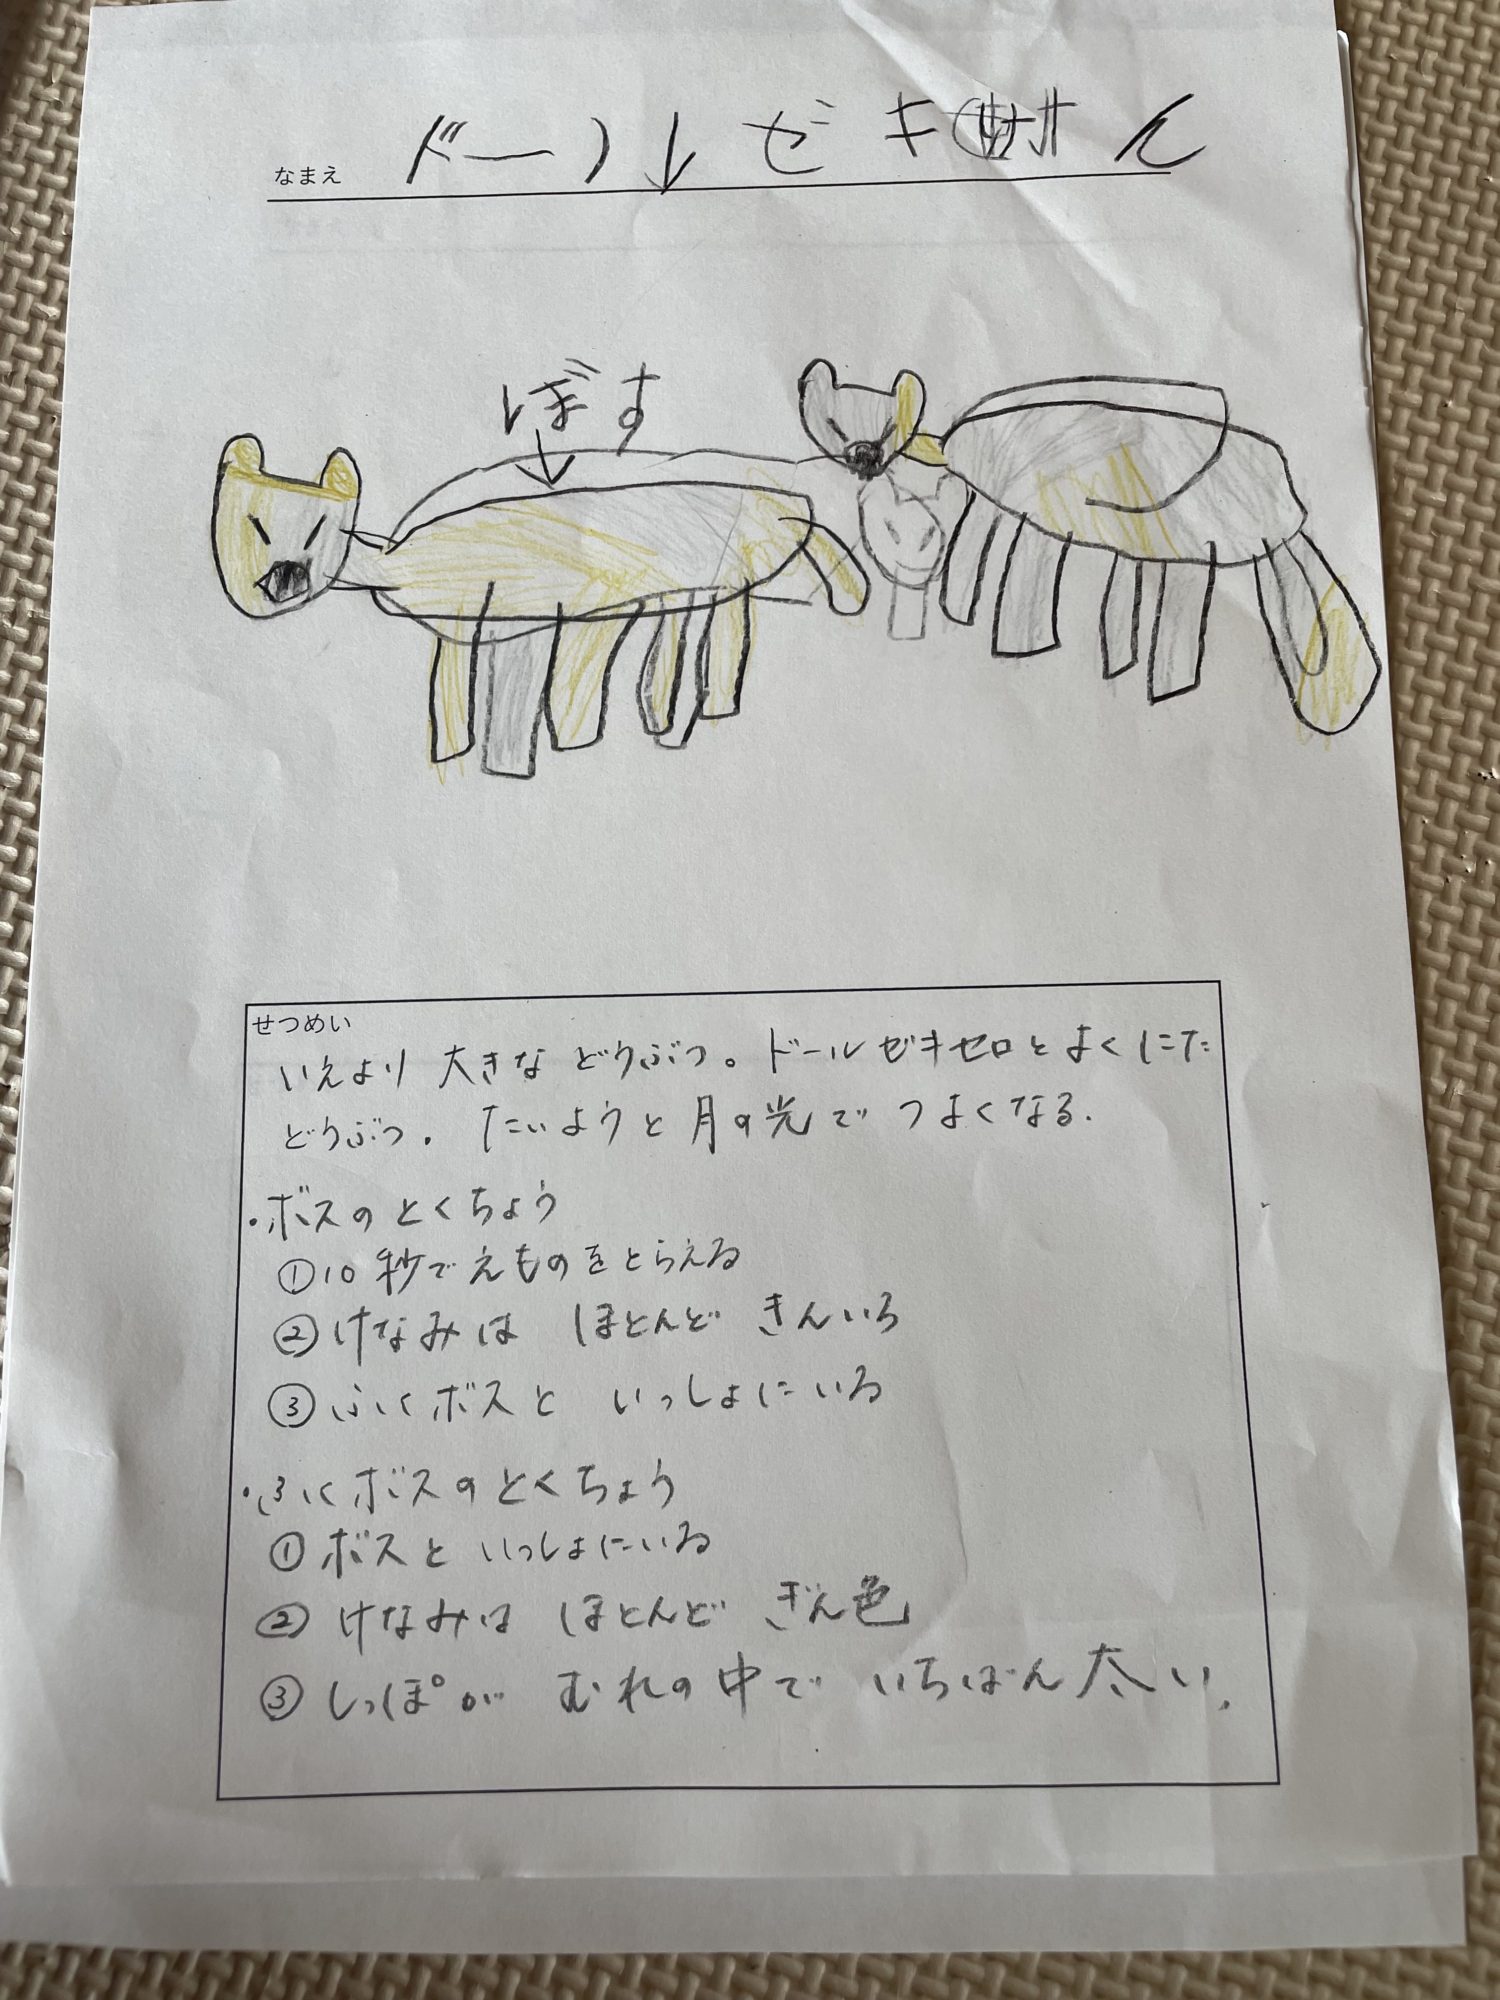 なまえ ドール ゼキ ん
ぼす
せつめい
いえより 大きな どうぶつ。ドールゼキゼロとよくにた
どうぶつ。たいようと月の光でつよくなる.
・ボスのとくちょう
①10秒でえものをとらえる
②けなみは ほとんど きんいろ
③ふくボスと いっしょにいる
・ふくボスのとくちょう
①ボスと いっしょにいる
②けなみは ほとんど ぎん色
③しっぽが むれの中で いちばん太い.